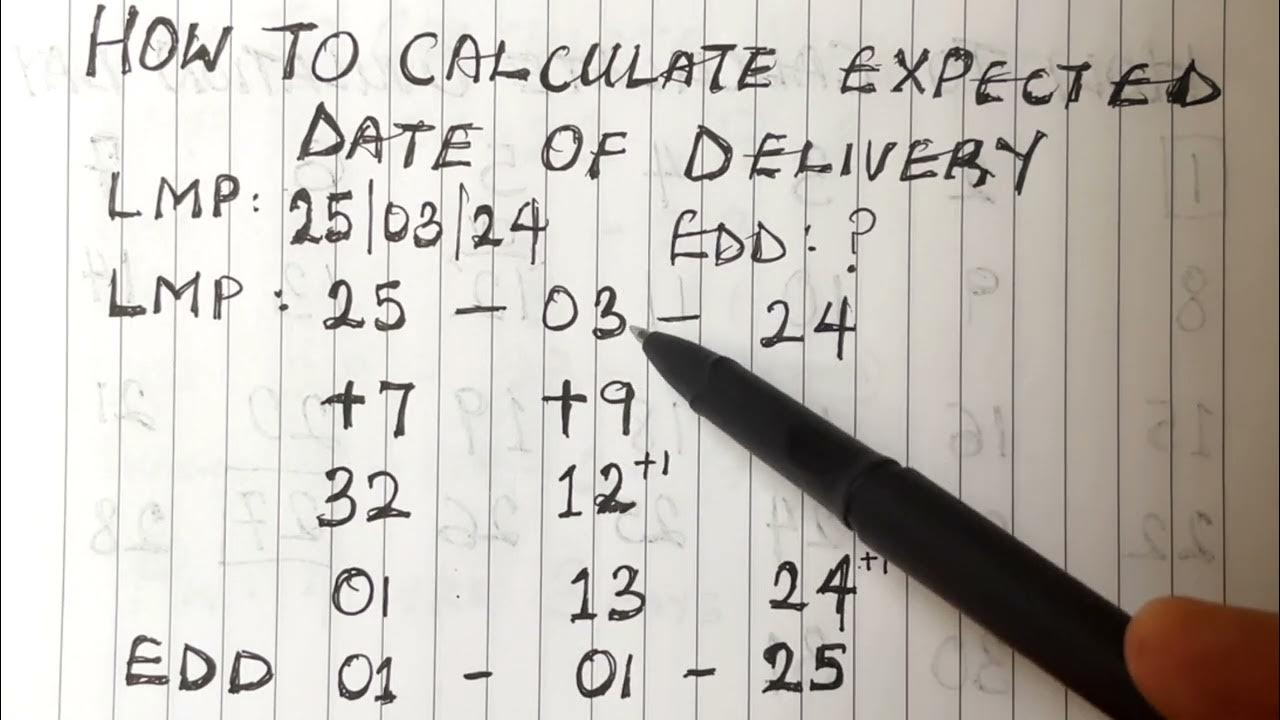 HOW TO CALCULATE EXPECTED
DATE OF DELIVERY
LMP: 25|03|24 EDD: ?
LMP: 25 - 03 - 24
+7 +9
32 12+1
01 13 24+1
EDD 01 - 01 - 25